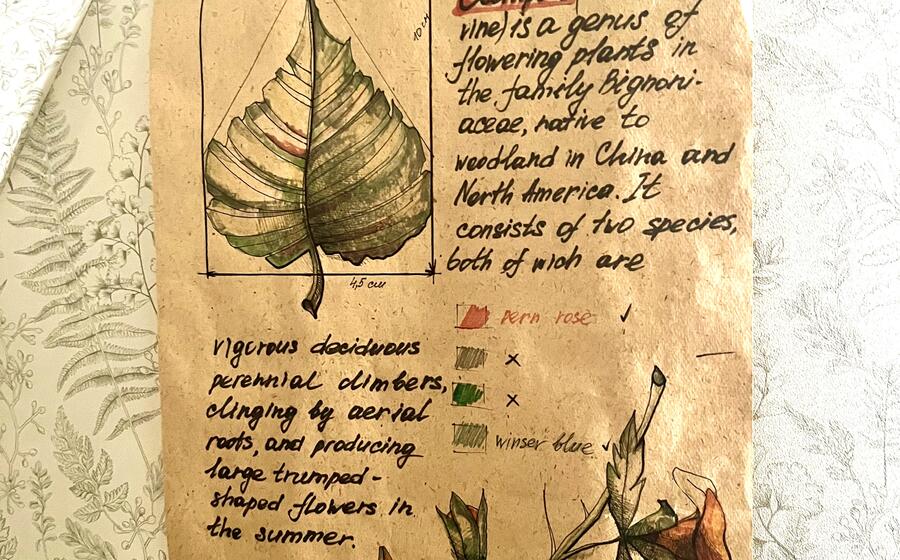 10 см
vine) is a genus of
flowering plants in
the family Bignoni-
aceae, native to
woodland in China and
North America. It
consists of two species,
both of wich are
4,5 см
pern rose ✓
x
x
winser blue ✓
vigorous deciduous
perennial climbers,
clinging by aerial
roots, and producing
large trumped-
shaped flowers in
the summer.